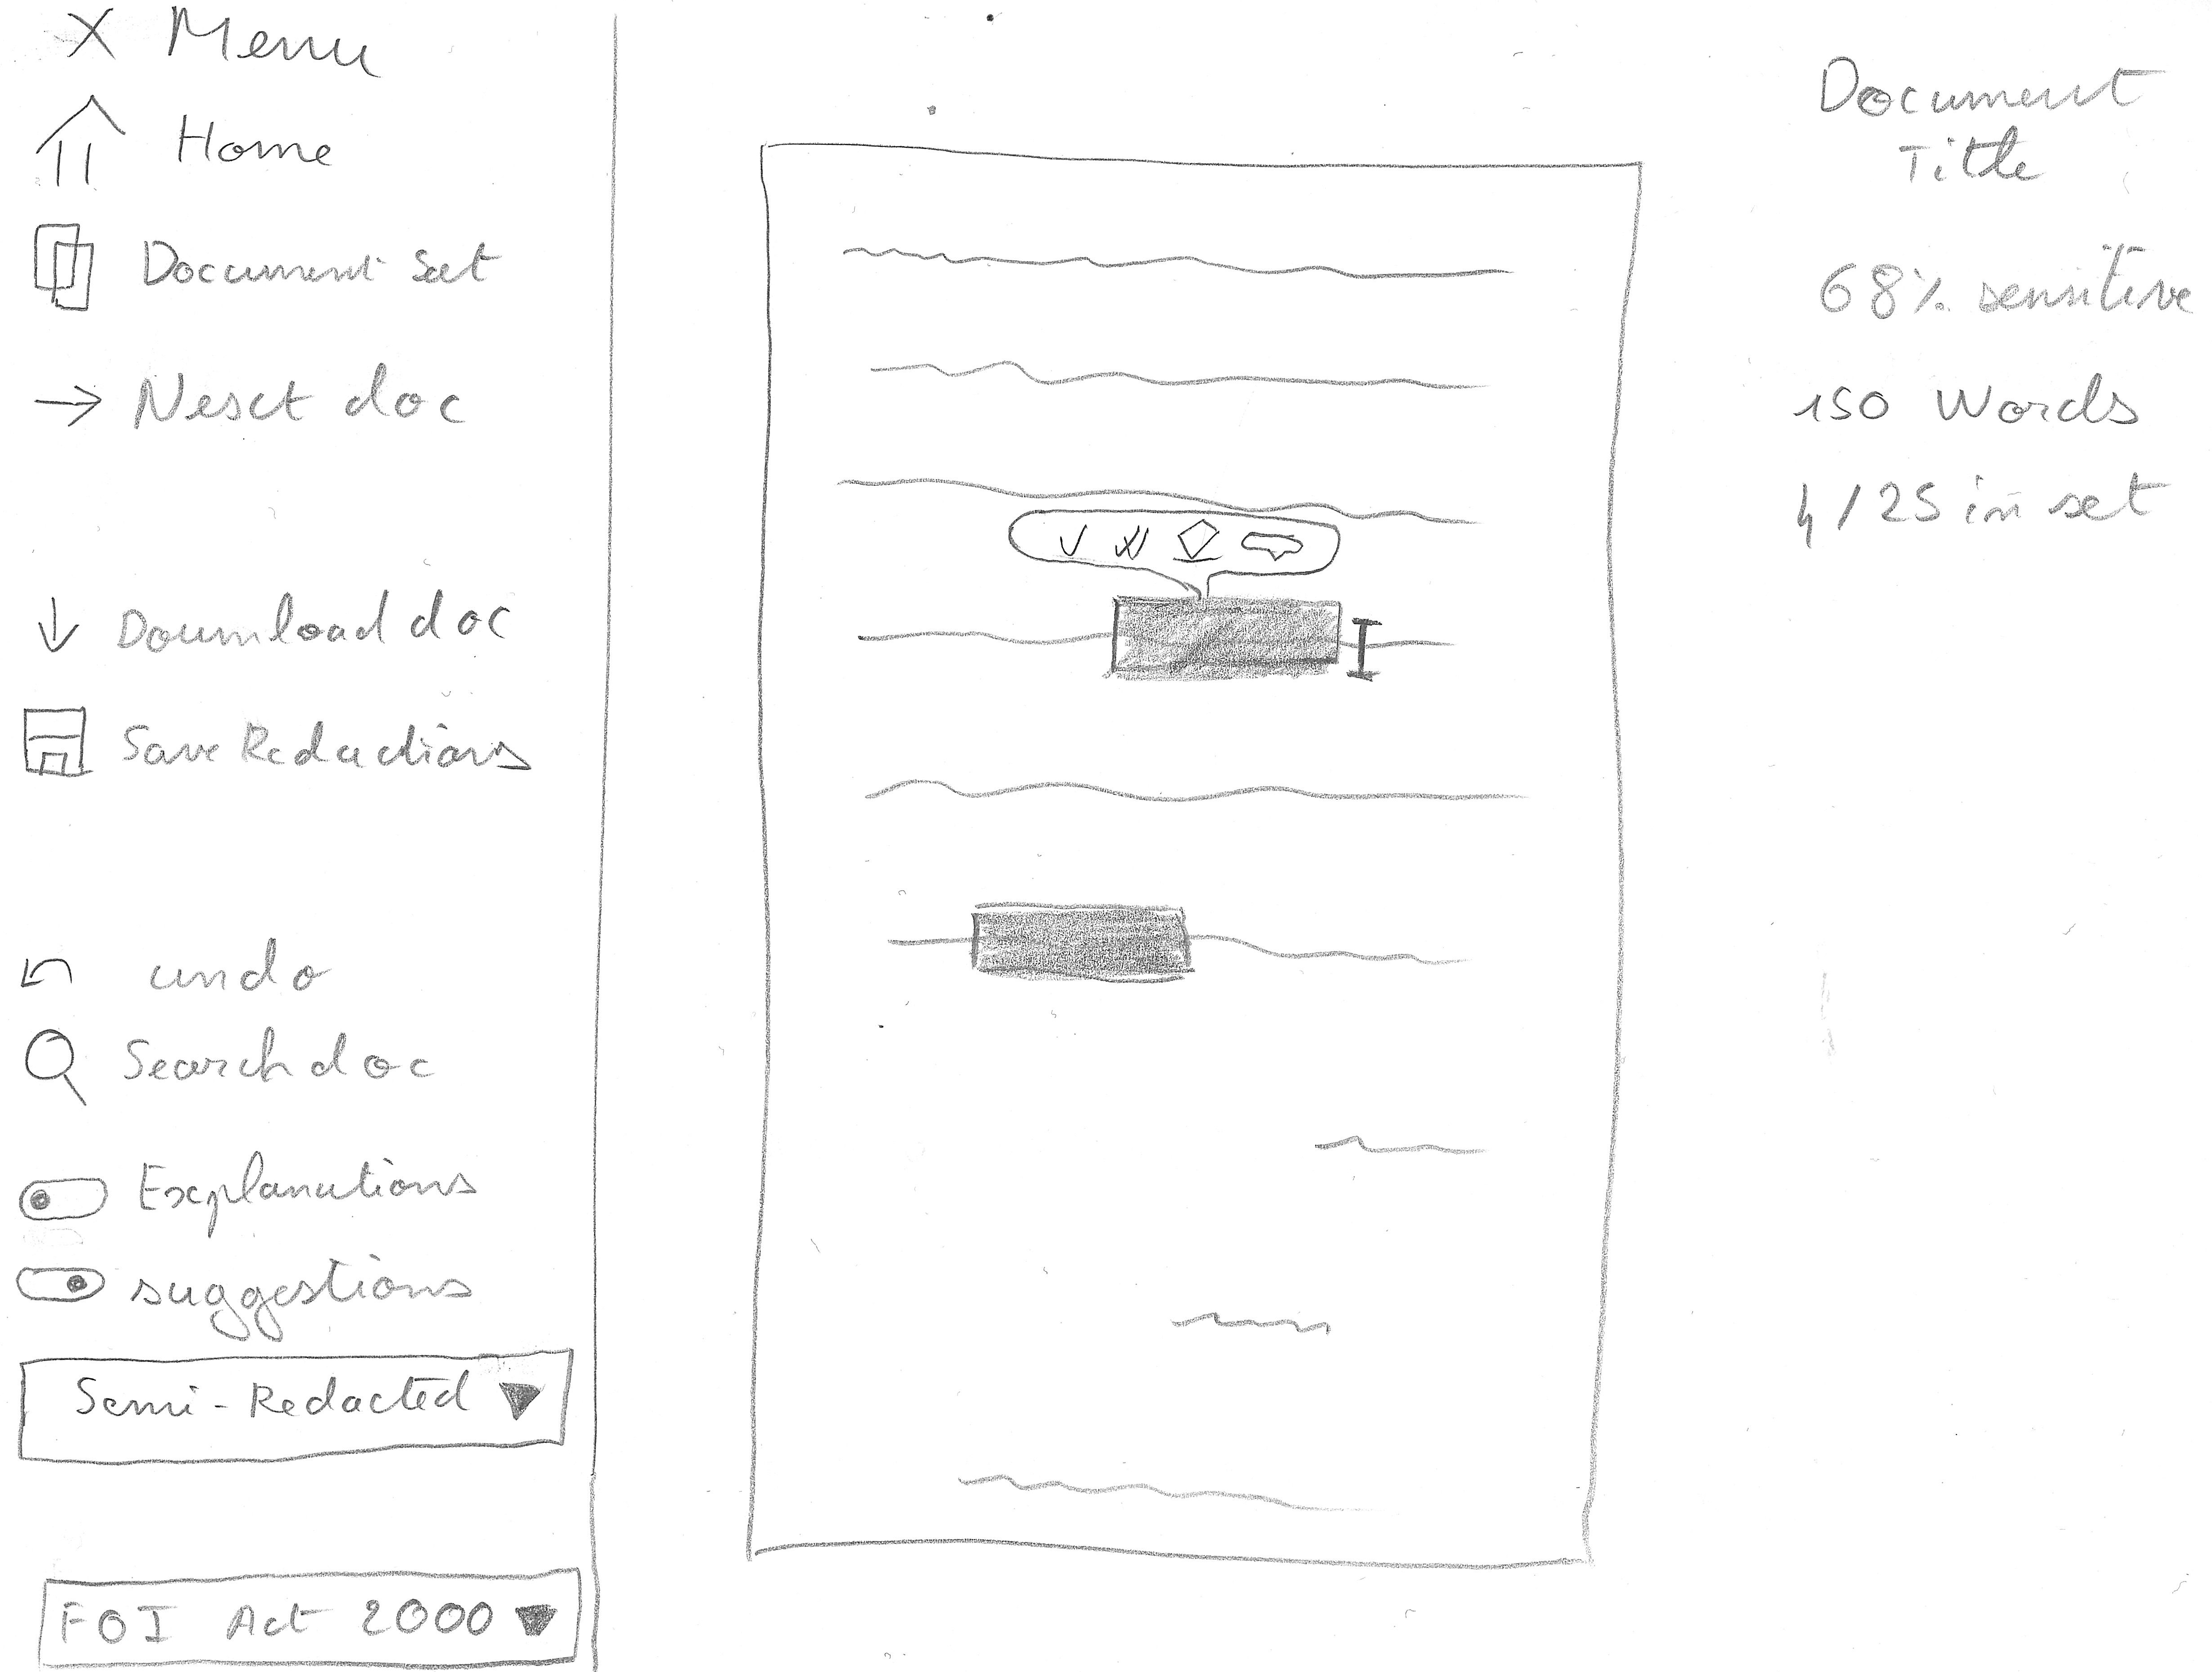 X Menu
Home
Document Set
Next doc
Download doc
Save Redactions
undo
Search doc
Explanations
suggestions
Semi-Redacted
FOI Act 2000
Document
Title
68% sensitive
150 Words
4/25 in set